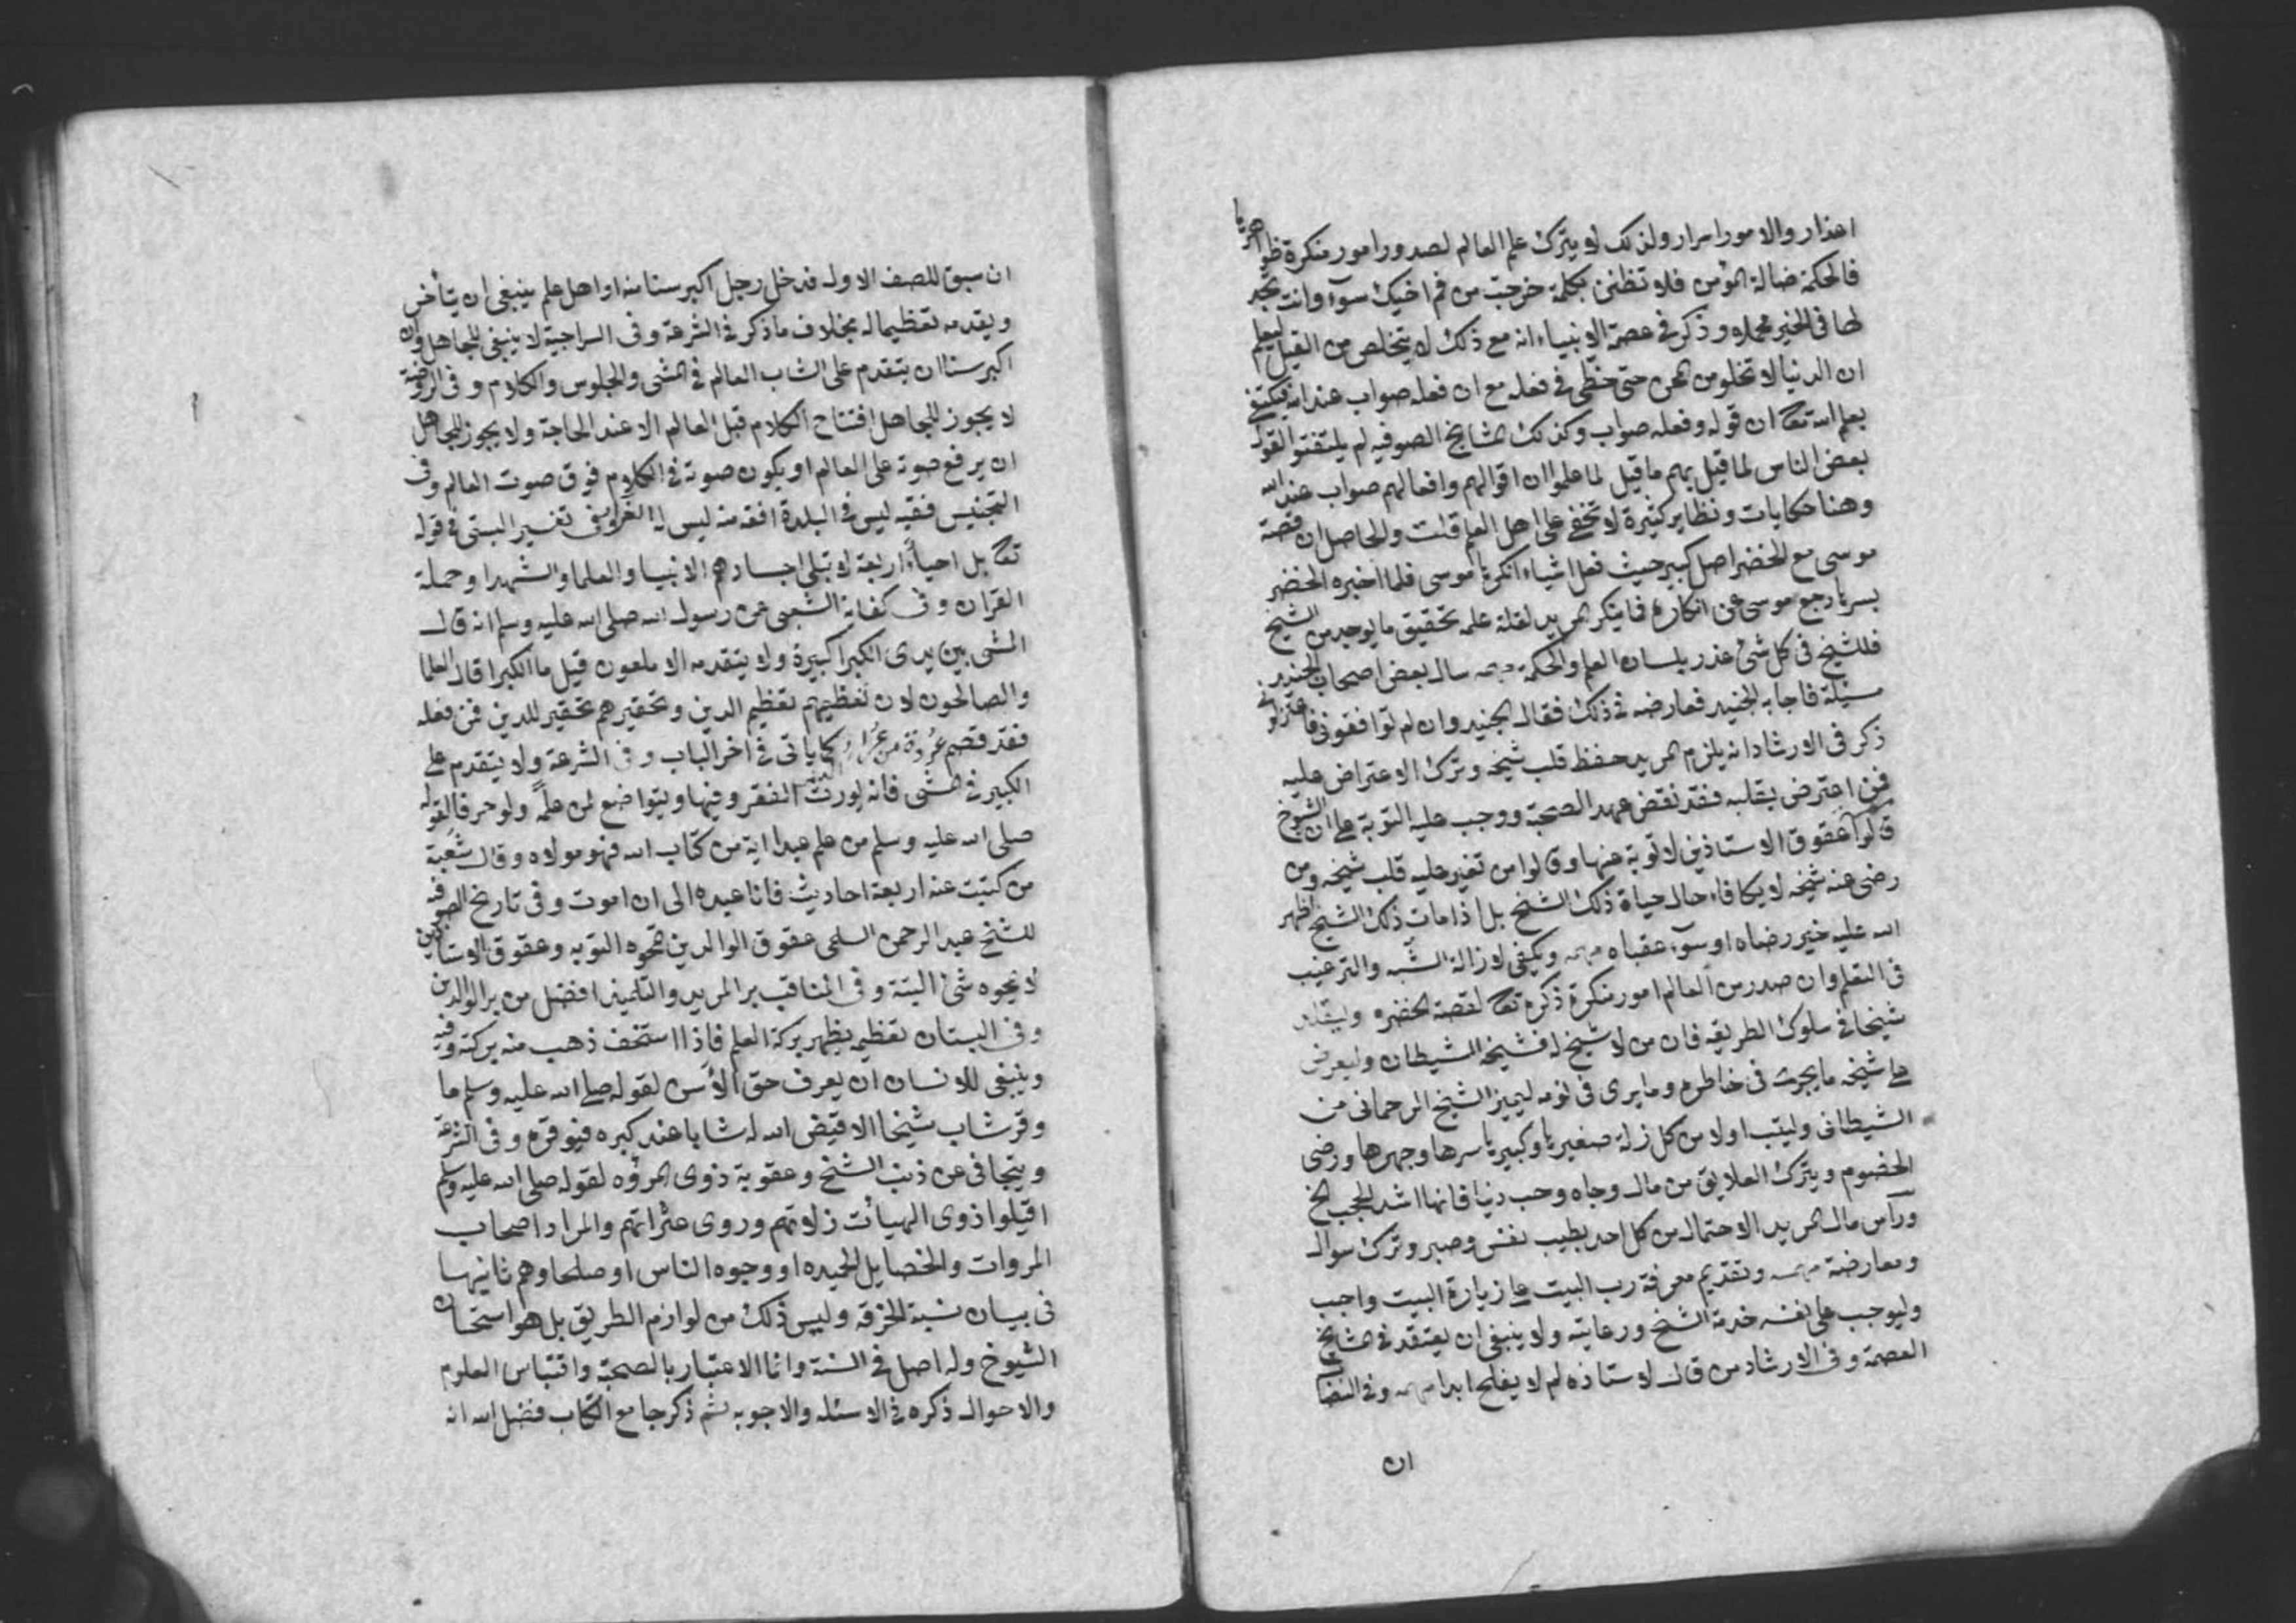 اعذار والامور اسرار ولذلك لا يترك علم العالم لصدور امور منكرة ظواهرها
فالحكمة ضالة المؤمن فلا تظنن بكلمة خرجت من فم اخيك سوآ وانت تجد
لها في الخير محملا وذكر في عصمة الانبياء انه مع ذلك لا يتخلص من القيل ليعلم
ان الدنيا لا تخلو من المحن حتى حظى في فعله مع ان فعله صواب عند الله فيكتفي
بعلم الله تعا ان قوله وفعله صواب وكذلك المشايخ الصوفيه لم يلتفتوا لقول
بعض الناس لما قيل بهم ما قيل لما علموا ان اقوالهم وافعالهم صواب عند الله
وهنا حكايات ونظاير كثيرة لا تخفى على اهل العلم قلت والحاصل ان قصة
موسى مع الخضر اصل كبير حيث فعل اشياء انكرها موسى فلما اخبره الخضر
بسرها رجع موسى عن انكاره فاينكر المريد لقلة علمه بحقيق ما يوجد من الشيخ
فللشيخ في كل شئ عذر بلسان العلم والحكمة سال بعض اصحاب الجنيد
مسئلة فاجابه الجنيد فعارضه في ذلك فقال الجنيد وان لم توافقوني فاعتزلوني
ذكر في الارشاد انه يلزم المريد حفظ قلب شيخه وترك الاعتراض عليه
فمن اعترض بقلبه فقد نقض عهد الصحبة ووجب عليه التوبة على ان الشيوخ
قالوا عقوق الاستاذين لا توبة عنها وقالوا من تغير عليه قلب شيخه ومن
رضى عنه شيخه لا يكافاء حال حياة ذلك الشيخ بل اذا مات ذلك الشيخ اظهر
الله عليه خير رضاه او سوآء عقباه مهمه ويكفى لازالة الشبه والترغيب
في التعلم وان صدر من العالم امور منكرة ذكره تعا لقصة الخضره وليقلد
شيخا في سلوك الطريقه فان من لا شيخ له فشيخه الشيطان وليعرض
على شيخه ما يجرى في خاطره وما يرى في نومه ليميز الشيخ الرحماني من
الشيطاني وليتب اولا من كل زلة صغيرها وكبيرها سرها وجهرها ورضى
الخصوم ويترك العلايق من مال وجاه وحب دنيا فانها اشد الحجب الخ
ورآس مال المريد الاحتمال من كل احد بطيب نفس وصبر وترك سوال
ومعارضة مهمه وتقديم معرفة رب البيت على زيارة البيت واجب
وليوجب على نفسه خدمة الشيخ ورعايته ولا ينبغى ان يعتقد في المشايخ
العصمة وفي الارشاد من قال لاستاذه لم لا يفلح ابدا مهمه وفي النصاب
ان
ان سبق للصف الاول فدخل رجل اكبر سنا منه او اهل علم ينبغى ان يتأخر
ويقدمه تعظيما له بخلاف ما ذكر في الشرعة وفي السراجية لا ينبغى للجاهل وان
اكبر سنا ان يتقدم على الشاب العالم في المشى والجلوس والكلام وفي الروضة
لا يجوز للجاهل افتتاح الكلام قبل العالم الا عند الحاجة ولا يجوز للجاهل
ان يرفع صوته على العالم او يكون صوته في الكلام فوق صوت العالم وفي
التجنيس فقيه ليس في البلدة افقه منه ليس له الغزو في تفسير البستى في قوله
تعا بل احياء اربعة لا تبلى اجسادهم الانبيا والعلما والشهدا وحملة
القران وفى كفاية الشعبى عن رسول الله صلى الله عليه وسلم انه قال
المشى بين يدى الكبرا كبيرة ولا يتقدمه الا ملعون قيل ما الكبرا قال العلما
والصالحون لان تعظيمهم تعظيم الدين وتحقيرهم تحقير للدين فمن فعله
فقد قصم عروة من عرا كما ياتى في اخر الباب وفي الشرعة ولا يتقدم على
الكبير في المشى فانه يورث الفقر وفيها ويتواضع لمن علمه ولو حرفا لقوله
صلى الله عليه وسلم من علم عبدا اية من كتاب الله فهو مولاه وقال شعبة
من كتبت عنه اربعة احاديث فانا عبده الى ان اموت وفى تاريخ الصوفيه
للشيخ عبد الرحمن السلمى عقوق الوالدين تمحوه التوبه وعقوق الاستاذين
لا يمحوه شئ البتة وفى المناقب بر المريد والتلميذ افضل من بر الوالدين
وفى البستان تعظيمه يظهر بركة العلم فاذا استخف ذهب منه بركته وفيه
وينبغى للانسان ان يعرف حق الأسن لقوله صلى الله عليه وسلم ما
وقر شاب شيخا الا قيض الله له شابا عند كبره فيوقره وفى الشرعة
ويتجافى عن ذنب الشيخ وعقوبة ذوى المروٰه لقوله صلى الله عليه وسلم
اقيلوا ذوى الهيأت زلاتهم وروى عثراتهم والمراد اصحاب
المروات والخصايل الحميده او وجوه الناس او صلحاوهم ثانيها
فى بيان نسبة الخرقه وليس ذلك من لوازم الطريق بل هو استحسان
الشيوخ وله اصل في السنة وانما الاعتبار بالصحبة واقتباس العلوم
والاحوال ذكره في الاسئله والاجوبه ثم ذكر جامع الكتاب فضل الله انه